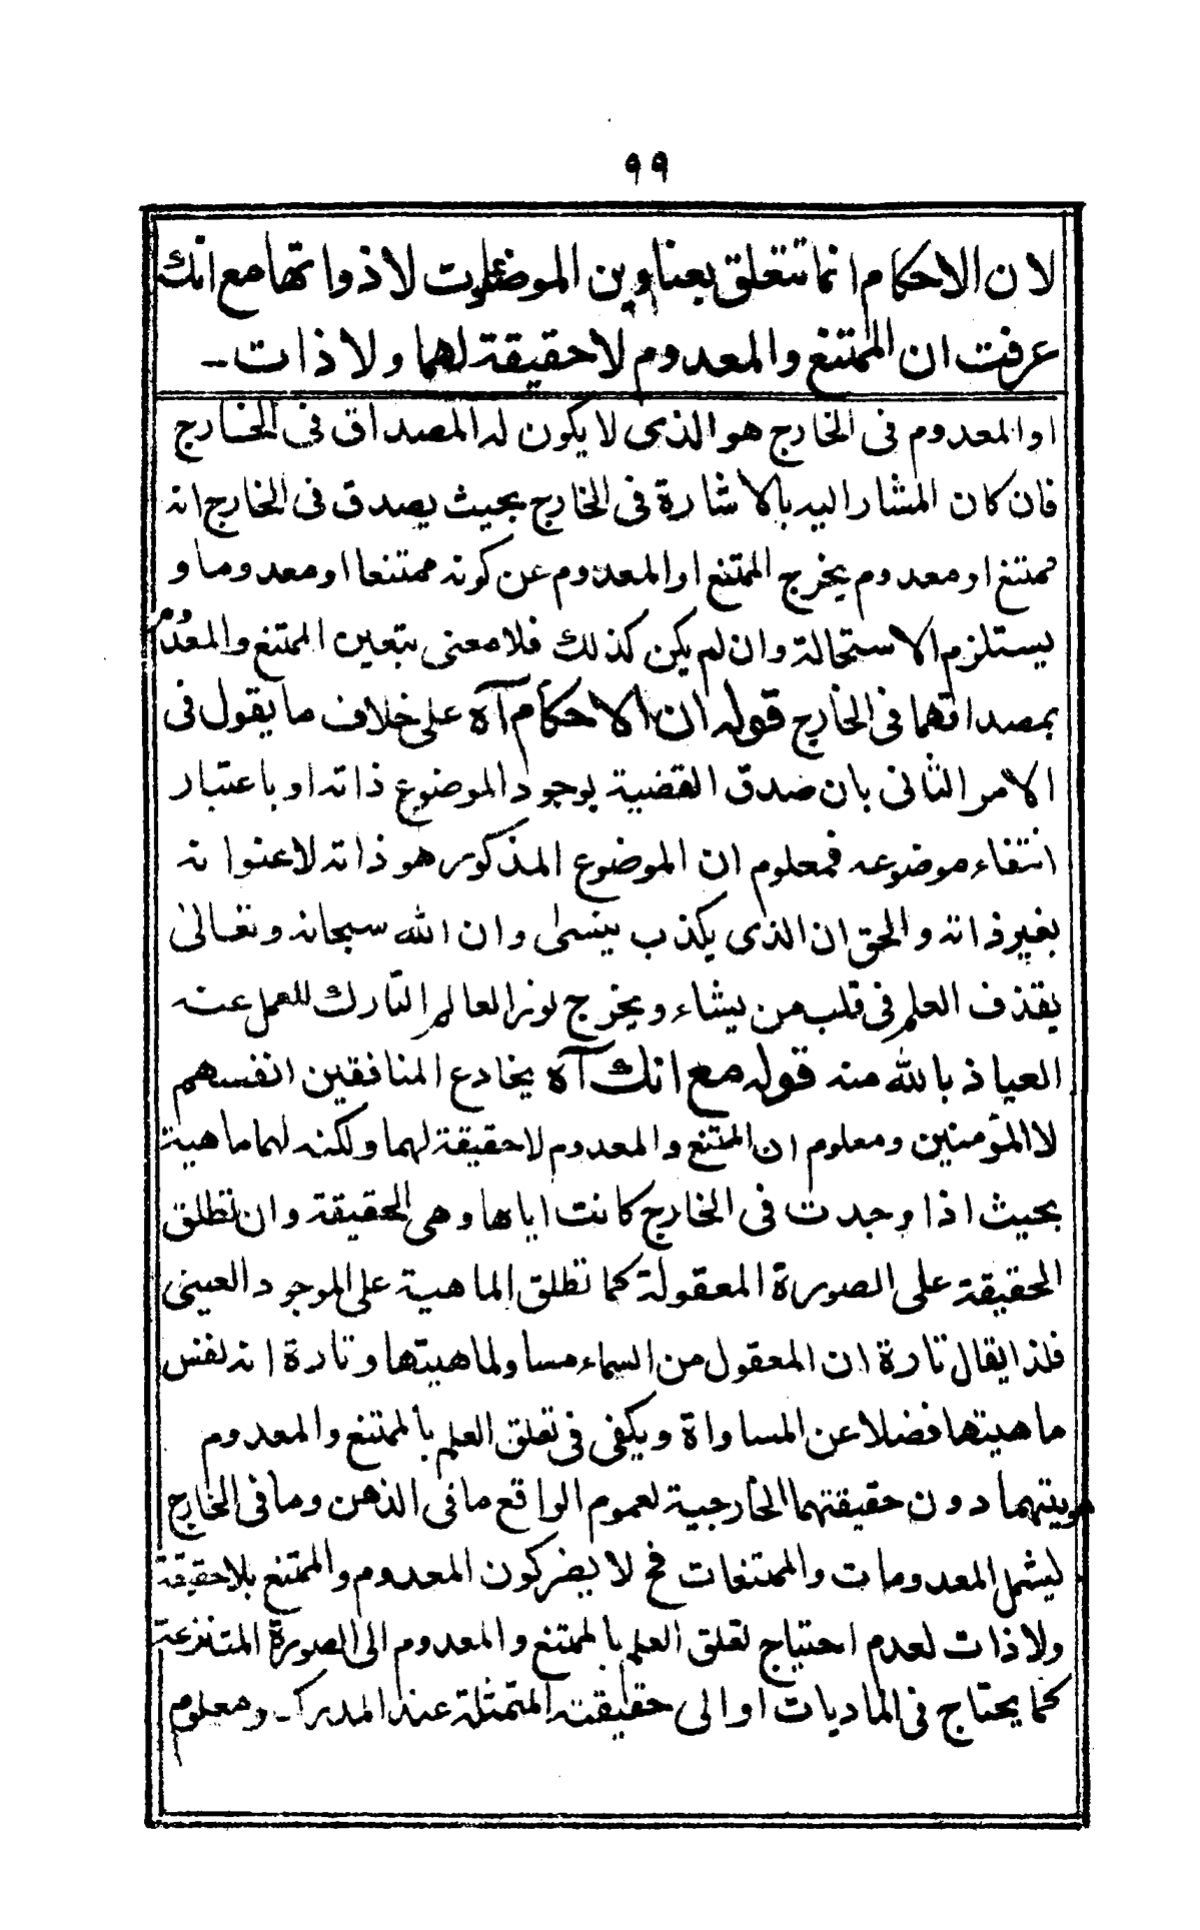 ٩٩
لان الاحكام انما تتعلق بعناوين الموضوعات لا ذواتها مع انك
عرفت ان الممتنع والمعدوم لا حقيقة لهما ولا ذات -
او المعدوم فى الخارج هو الذى لا يكون له المصداق فى الخارج
فان كان المشار اليه بالاشارة فى الخارج بحيث يصدق فى الخارج انه
ممتنع او معدوم يخرج الممتنع او المعدوم عن كونه ممتنعا او معدوما و
يستلزم الاستحالة وان لم يكن كذلك فلا معنى بتعين الممتنع والمعدوم
بمصداقهما فى الخارج قوله ان الاحكام آه على خلاف ما يقول فى
الامر الثانى بان صدق القضية بوجود الموضوع ذاته او باعتبار
انتفاء موضوعه فمعلوم ان الموضوع المذكور هو ذاته لا عنوانه
بغير ذاته والحق ان الذى يكذب ينسىٰ وان الله سبحانه وتعالىٰ
يقذف العلم فى قلب من يشاء ويخرج نور العالم التارك للعمل عنه
العياذ بالله منه قوله مع انك آه يخادع المنافقين انفسهم
لا المؤمنين ومعلوم ان الممتنع والمعدوم لا حقيقة لهما ولكنه لهما ماهية
بحيث اذا وجدت فى الخارج كانت اياها وهى الحقيقة وان تطلق
الحقيقة على الصورة المعقولة كما تطلق الماهية على الموجود العينى
فلذا يقال تارة ان المعقول من السماء مساو لماهيتها وتارة انه نفس
ماهيتها فضلا عن المساواة ويكفى فى تعلق العلم بالممتنع والمعدوم
هويتهما دون حقيقتهما الخارجية لعموم الواقع ما فى الذهن وما فى الخارج
ليشمل المعدومات والممتنعات فح لا يضر كون المعدوم والممتنع بلا حقيقة
ولا ذات لعدم احتياج تعلق العلم بالممتنع والمعدوم الى الصورة المتنزعة
كما يحتاج فى الماديات او الى حقيقته المتمثلة عند المدرك - ومعلوم